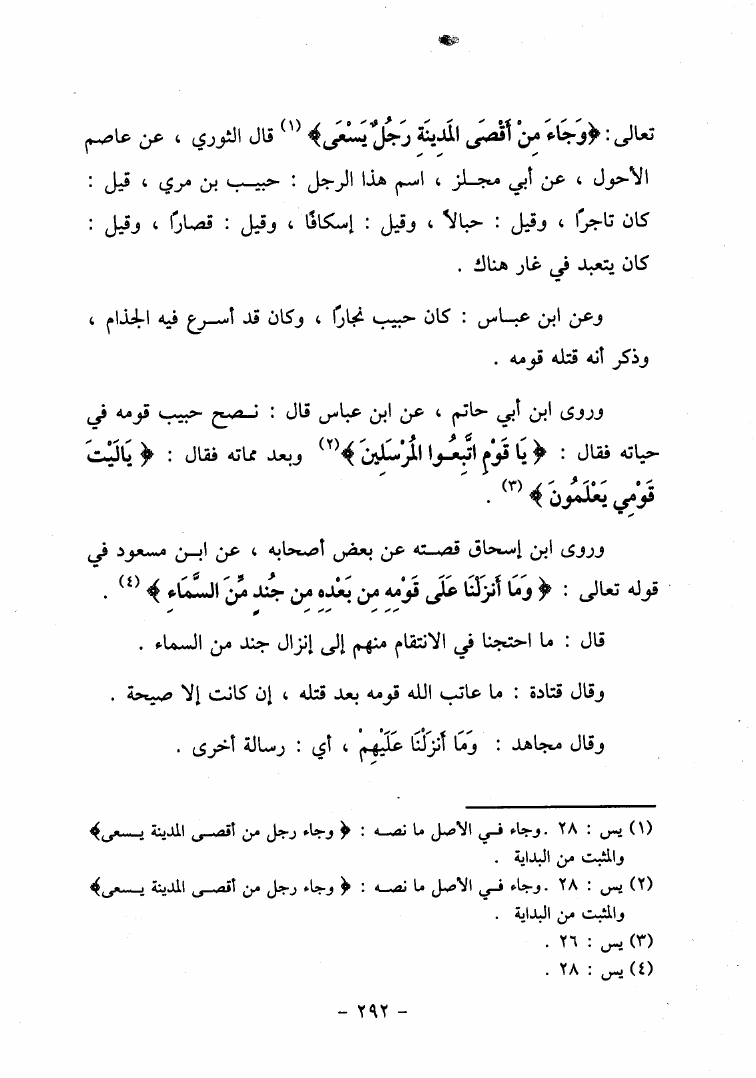 تعالى: ﴿وَجَاءَ مِنْ أَقْصَى المَدِينَةِ رَجُلٌ يَسْعَى﴾ (١) قال الثوري ، عن عاصم
الأحول ، عن أبي مجلز ، اسم هذا الرجل : حبيب بن مري ، قيل :
كان تاجرًا ، وقيل : حبالاً ، وقيل : إسكافًا ، وقيل : قصارًا ، وقيل :
كان يتعبد في غار هناك .
وعن ابن عباس : كان حبيب نجارًا ، وكان قد أسرع فيه الجذام ،
وذكر أنه قتله قومه .
وروى ابن أبي حاتم ، عن ابن عباس قال : نصح حبيب قومه في
حياته فقال : ﴿ يَا قَوْمِ اتَّبِعُوا المُرْسَلِينَ ﴾(٢) وبعد مماته فقال : ﴿ يَالَيْتَ
قَوْمِي يَعْلَمُونَ ﴾ (٣) .
وروى ابن إسحاق قصته عن بعض أصحابه ، عن ابن مسعود في
قوله تعالى : ﴿ وَمَا أَنزَلْنَا عَلَى قَوْمِهِ مِن بَعْدِهِ مِن جُندٍ مِّنَ السَّمَاءِ ﴾ (٤) .
قال : ما احتجنا في الانتقام منهم إلى إنزال جند من السماء .
وقال قتادة : ما عاتب الله قومه بعد قتله ، إن كانت إلا صيحة .
وقال مجاهد : وَمَا أَنزَلْنَا عَلَيْهِمْ ، أي : رسالة أخرى .
(١) يس : ٢٨ .وجاء في الأصل ما نصه : ﴿ وجاء رجل من أقصى المدينة يسعى﴾
والمثبت من البداية .
(٢) يس : ٢٨ .وجاء في الأصل ما نصه : ﴿ وجاء رجل من أقصى المدينة يسعى﴾
والمثبت من البداية .
(٣) يس : ٢٦ .
(٤) يس : ٢٨ .
- ٢٩٢ -